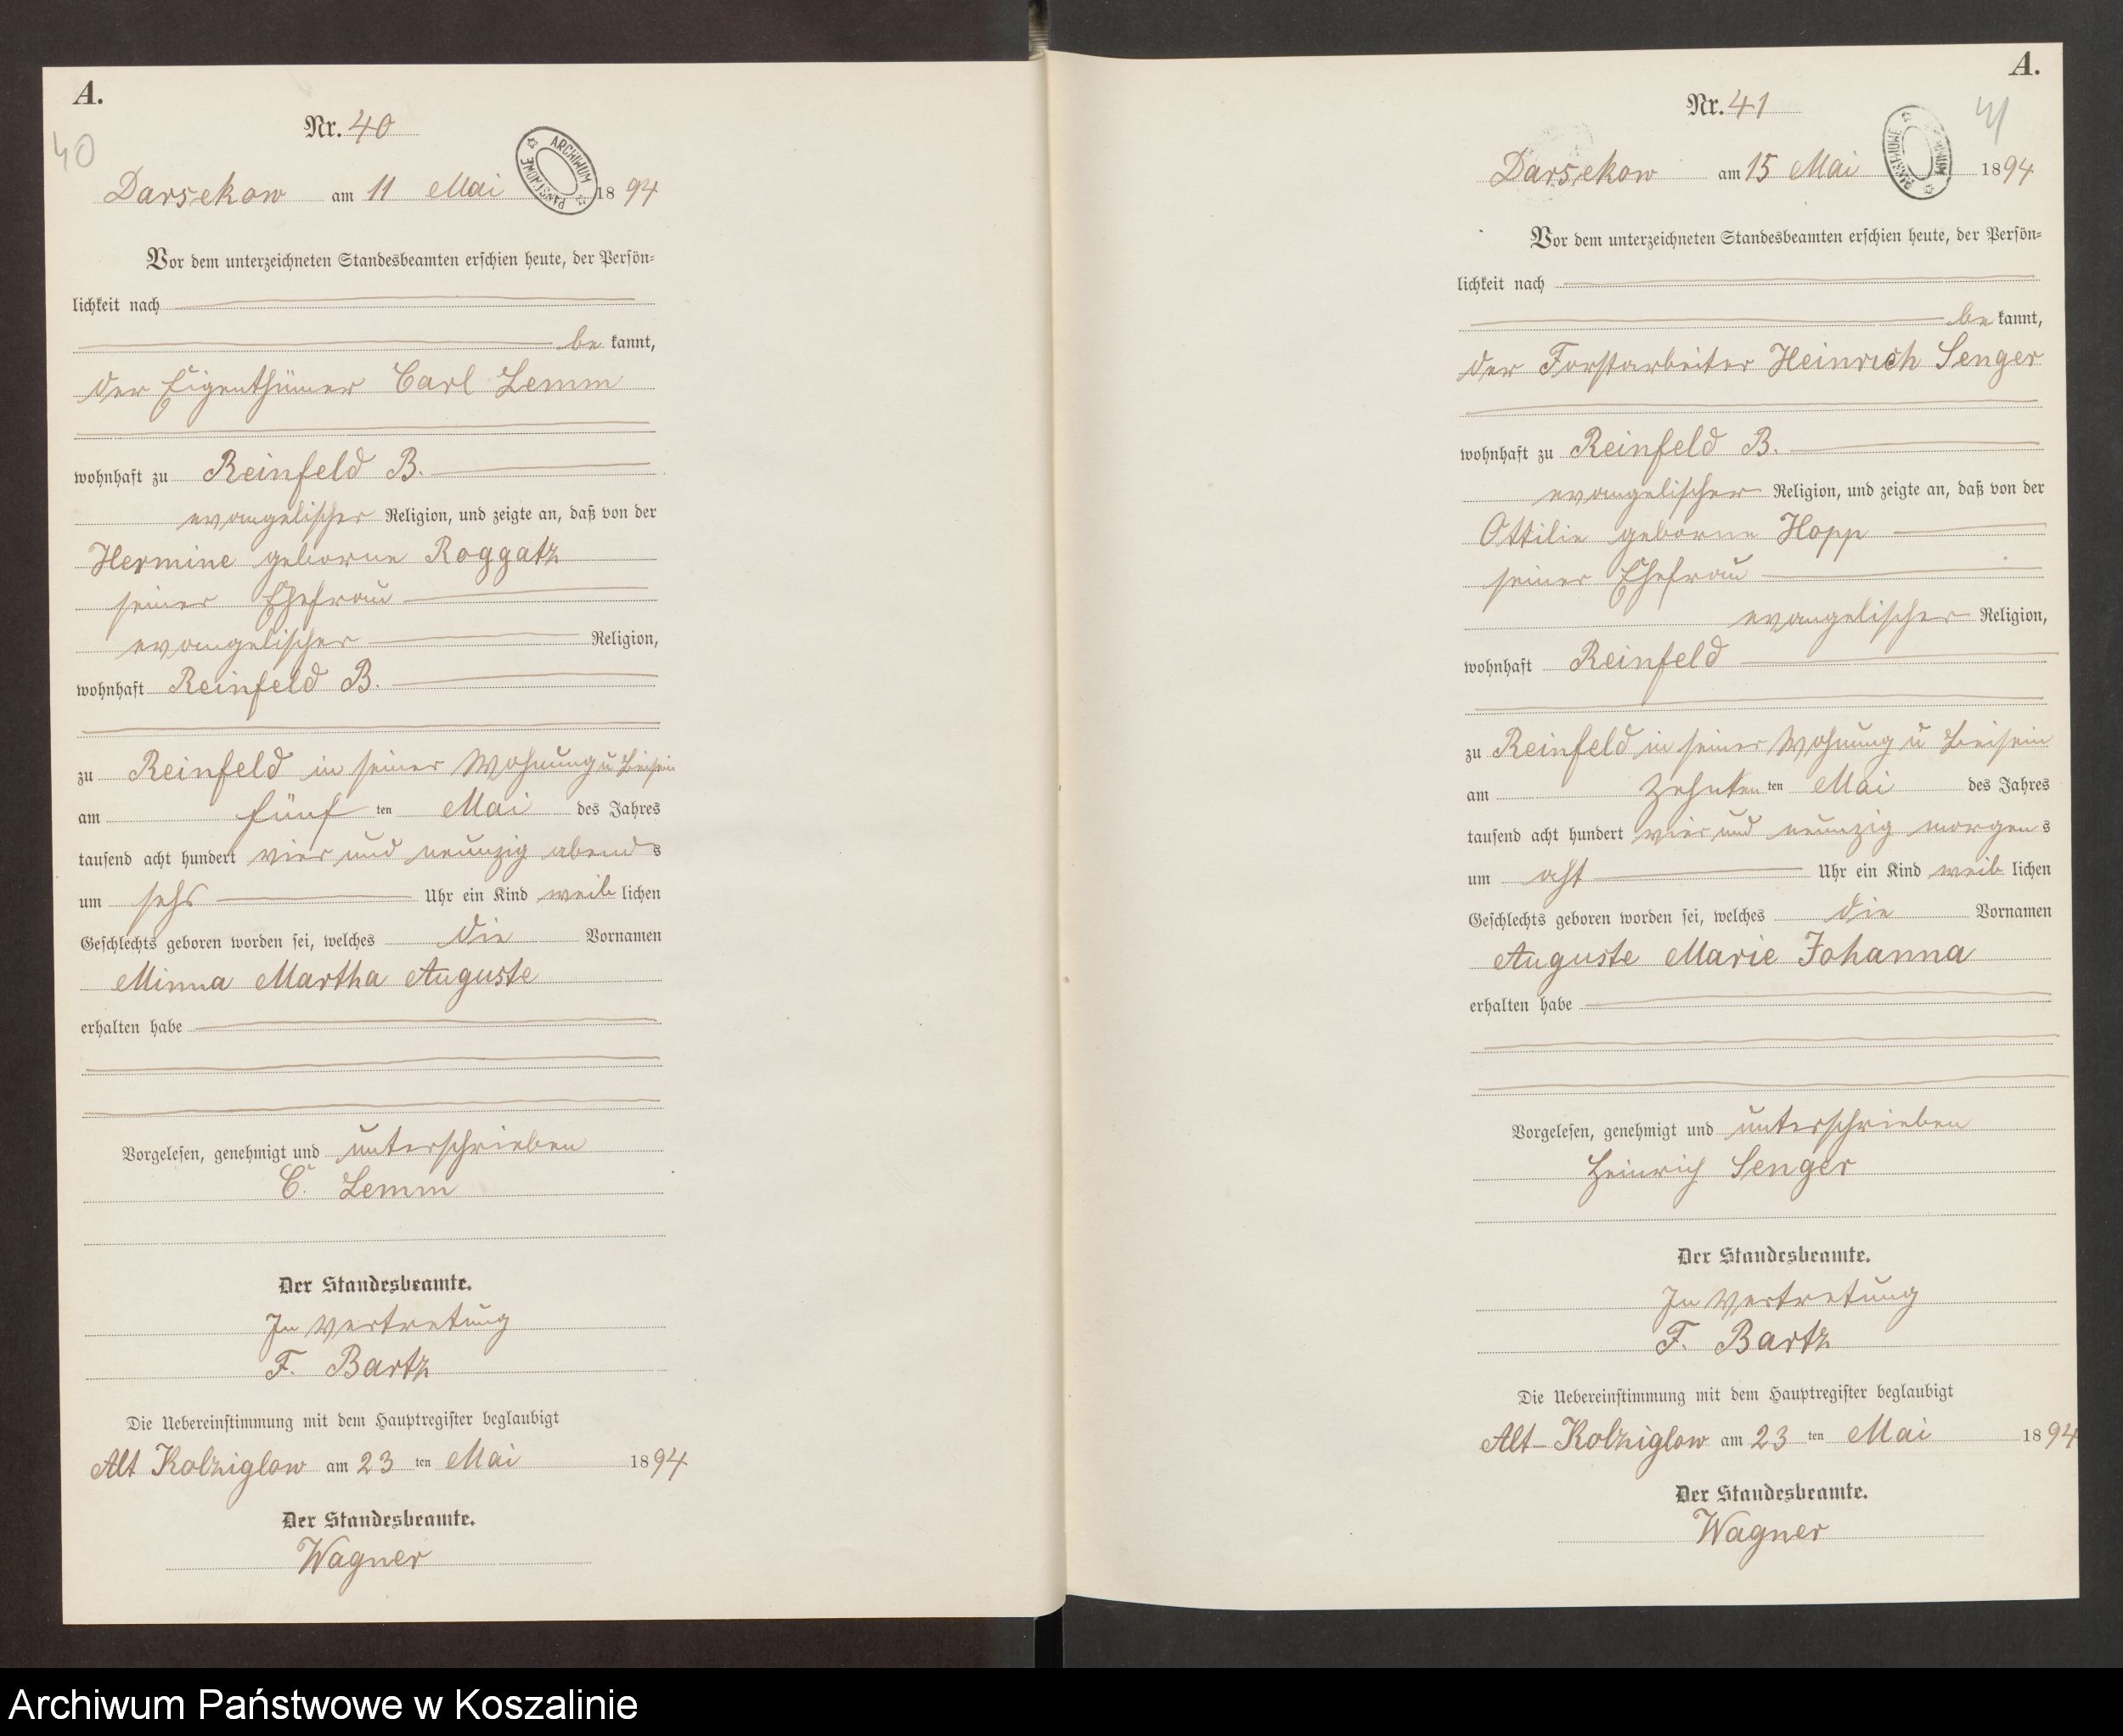 A.
40
Nr. 40
ARCHIWUM PAŃSTWOWE
Darsekow am 11 Mai 1894
Vor dem unterzeichneten Standesbeamten erschien heute, der Persön-
lichkeit nach
be kannt,
der Eigenthümer Carl Lemm
wohnhaft zu Reinfeld B.
evangelischer Religion, und zeigte an, daß von der
Hermine geborne Roggatz
seiner Ehefrau
evangelischer Religion,
wohnhaft Reinfeld B.
zu Reinfeld in seiner Wohnung u Beisein
am fünf ten Mai des Jahres
tausend acht hundert vier und neunzig abends
um sechs Uhr ein Kind weiblichen
Geschlechts geboren worden sei, welches die Vornamen
Minna Martha Auguste
erhalten habe
Vorgelesen, genehmigt und unterschrieben
C. Lemm
Der Standesbeamte.
In Vertretung
F. Bartz
Die Uebereinstimmung mit dem Hauptregister beglaubigt
Alt Kolziglow am 23 ten Mai 1894
Der Standesbeamte.
Wagner
A.
41
Nr. 41
ARCHIWUM PAŃSTWOWE
Darsekow am 15 Mai 1894
Vor dem unterzeichneten Standesbeamten erschien heute, der Persön-
lichkeit nach
be kannt,
der Forstarbeiter Heinrich Senger
wohnhaft zu Reinfeld B.
evangelischer Religion, und zeigte an, daß von der
Ottilie geborne Hopp
seiner Ehefrau
evangelischer Religion,
wohnhaft Reinfeld
zu Reinfeld in seiner Wohnung u Beisein
am zehnten ten Mai des Jahres
tausend acht hundert vier und neunzig morgens
um acht Uhr ein Kind weiblichen
Geschlechts geboren worden sei, welches die Vornamen
Auguste Marie Johanna
erhalten habe
Vorgelesen, genehmigt und unterschrieben
Heinrich Senger
Der Standesbeamte.
In Vertretung
F. Bartz
Die Uebereinstimmung mit dem Hauptregister beglaubigt
Alt-Kolziglow am 23 ten Mai 1894
Der Standesbeamte.
Wagner
Archiwum Państwowe w Koszalinie